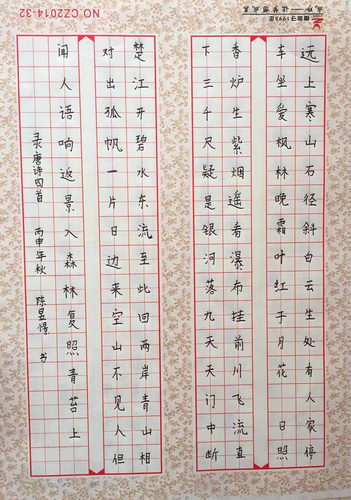 远上寒山石径斜白云生处有人家停
车坐爱枫林晚霜叶红于月花 日照
香炉生紫烟遥看瀑布挂前川飞流直
下三千尺疑是银河落九天天门中断
楚江开碧水东流至此回两岸青山相
对出孤帆一片日边来空山不见人但
闻人语响返景入森林复照青苔上
录唐诗四首 丙申年秋 陈昱 书
NO.CZ2014-32